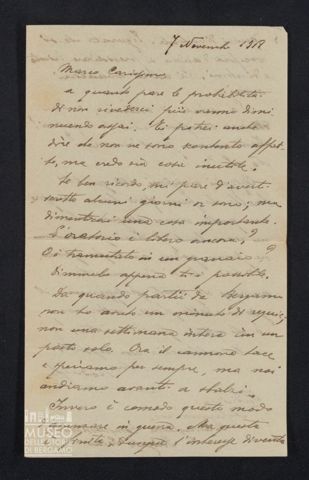 7 Novemb. 1918
Marco Carissimo
a quanto pare le probabilità
di non rivederci più vanno dimi
nuendo assai. Ti potrei anche
dire che non ne sono
ma credo sia cosa inutile.
Se ben ricordo, mi pare d'averti
scritto alcuni giorni or sono; ma
dimenticai una cosa importante.
L'oratorio è libero ancora?
O è tramutato in un granaio?
Dimmelo appena ti è possibile.
Da quando partii da Bergamo
non ho avuto un minuto di requie;
non una settimana intera in un
posto solo. Ora il cannone tace
e speriamo per sempre, ma noi
andiamo avanti a sbalzi.
Invero è comodo questo modo
in guerra. Ma questa
è finita, dunque l'interesse diventa
MUSEO
DELLE STORIE
DI BERGAMO